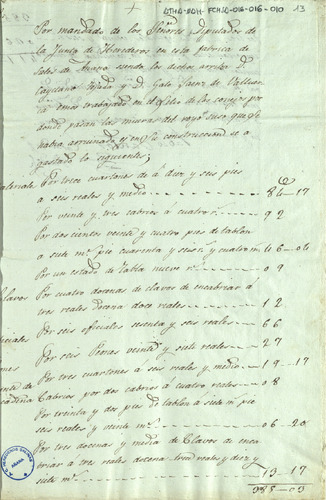 ATHA-DAH-FCHS-016-016-010 13
Por mandado de los Señores Diputados de
la Junta de Herederos en esta fabrica de
Sales de Anana siendo los dichos arriba D.
Cayetano Tejada y D. Galo Saenz de
trabajado en el de los
donde pasan las mieras del royo que se
habia arruinado y en su construccion se a
gastado lo siguiente;
Por trece cuartones de á diez y seis pies
a seis reales y medio 84-17
Por veinte y tres cabrios á cuatro r.s 92
Por docientos veinte y cuatro pies de tablon
a siete m.s pie cuarenta y seis r.s y cuatro m.s 46-04
Por un estado de tabla nueve r.s 09
Clavos Por cuatro docenas de clavos de encabriar á
tres reales docena doce reales 12
Por seis oficiales sesenta y seis reales 66
Por seis Peones veinte y siete reales 27
Por tres cuartones á seis reales y medio 19-17
Cabrios por dos cabrios á cuatro reales 08
Por treinta y dos pies de tablon a siete m.s pie
seis reales y veinte m.s 06-20
Por tres docenas y media de Clavos de enca
briar á tres reales docena reales y diez y
siete m.s 13-17